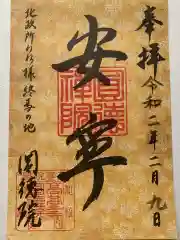 奉拝 令和二年二月九日
安寧
北政所ねね様終焉の地
圓徳院